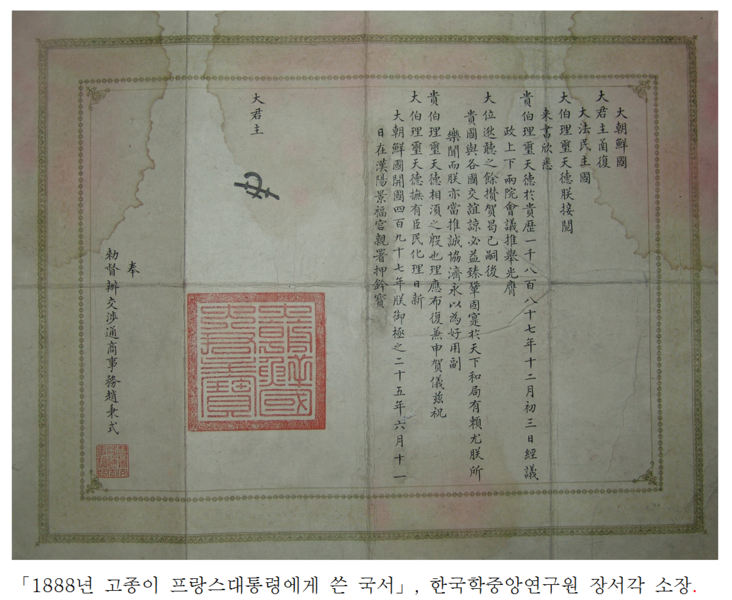 大朝鮮國
大君主函復
大法民主國
大伯理璽天德朕接閱
来書欣悉
貴伯理璽天德於貴歷一千八百八十七年十二月初三日經議
政上下兩院會議推擧光膺
大位逖聽之餘攢賀曷已嗣後
貴國與各國交誼諒必益臻鞏固寔於天下和局有賴尤朕所
樂聞而朕亦當推誠協濟永以為好用副
貴伯理璽天德相須之殷也理應布復兼申賀儀玆祝
大伯理璽天德撫有臣民化理日新
大朝鮮國開國四百九十七年朕御極之二十五年六月十一
日在漢陽景福宮親署押鈐寶
大君主
奉
勅督辦交涉通商事務趙秉式
「1888년 고종이 프랑스대통령에게 쓴 국서」, 한국학중앙연구원 장서각 소장.